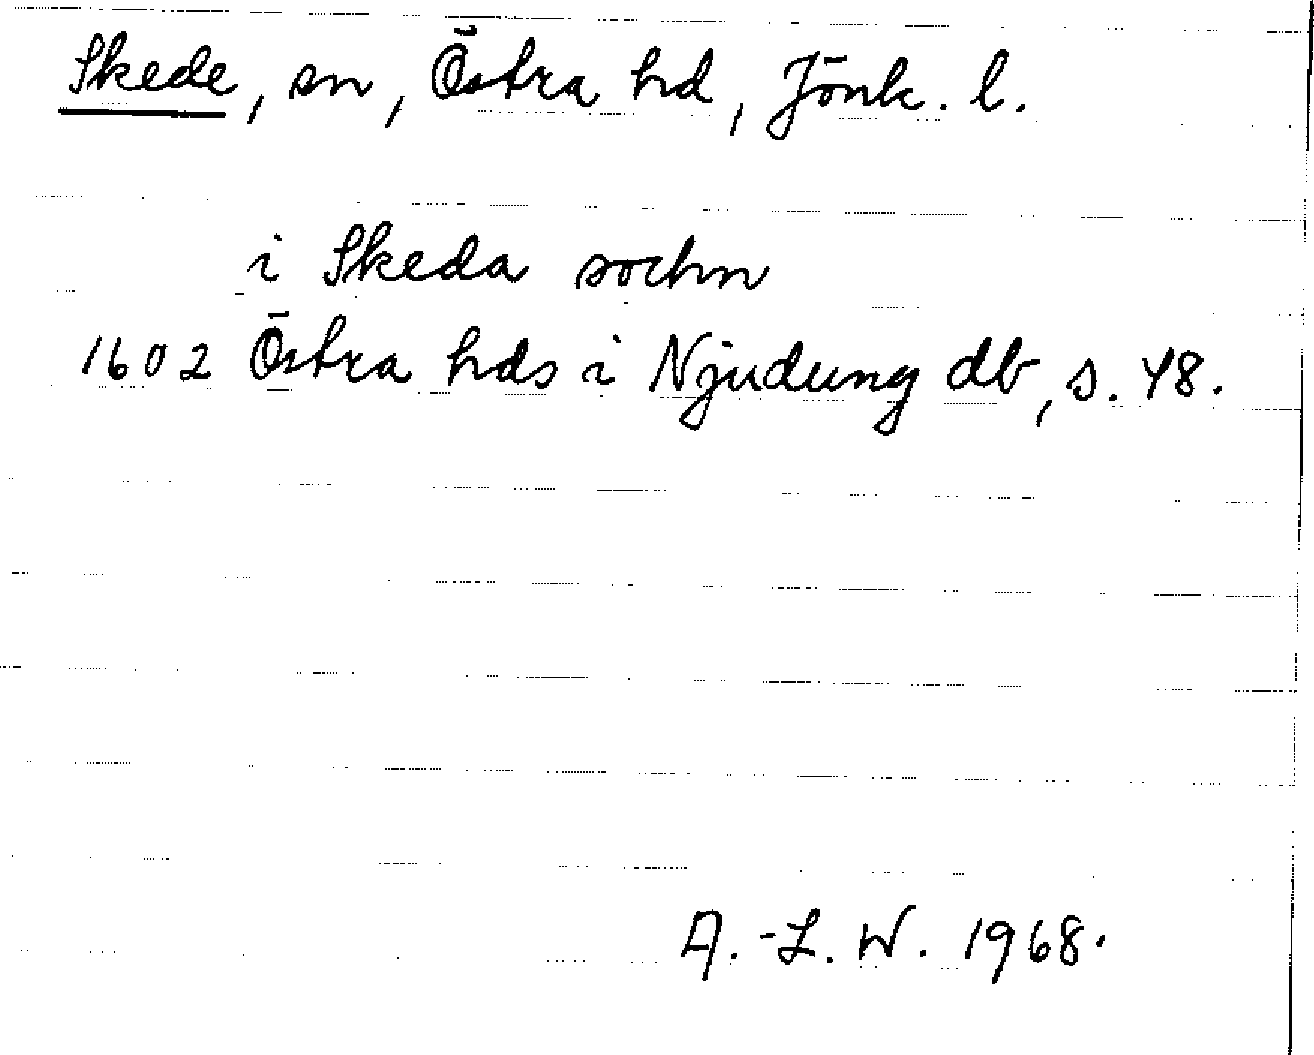 Skede, sn, Östra hd, Jönk. l.
i Skeda sochn
1602 Östra hds i Njudung db, s. 48.
A.-L. W. 1968.